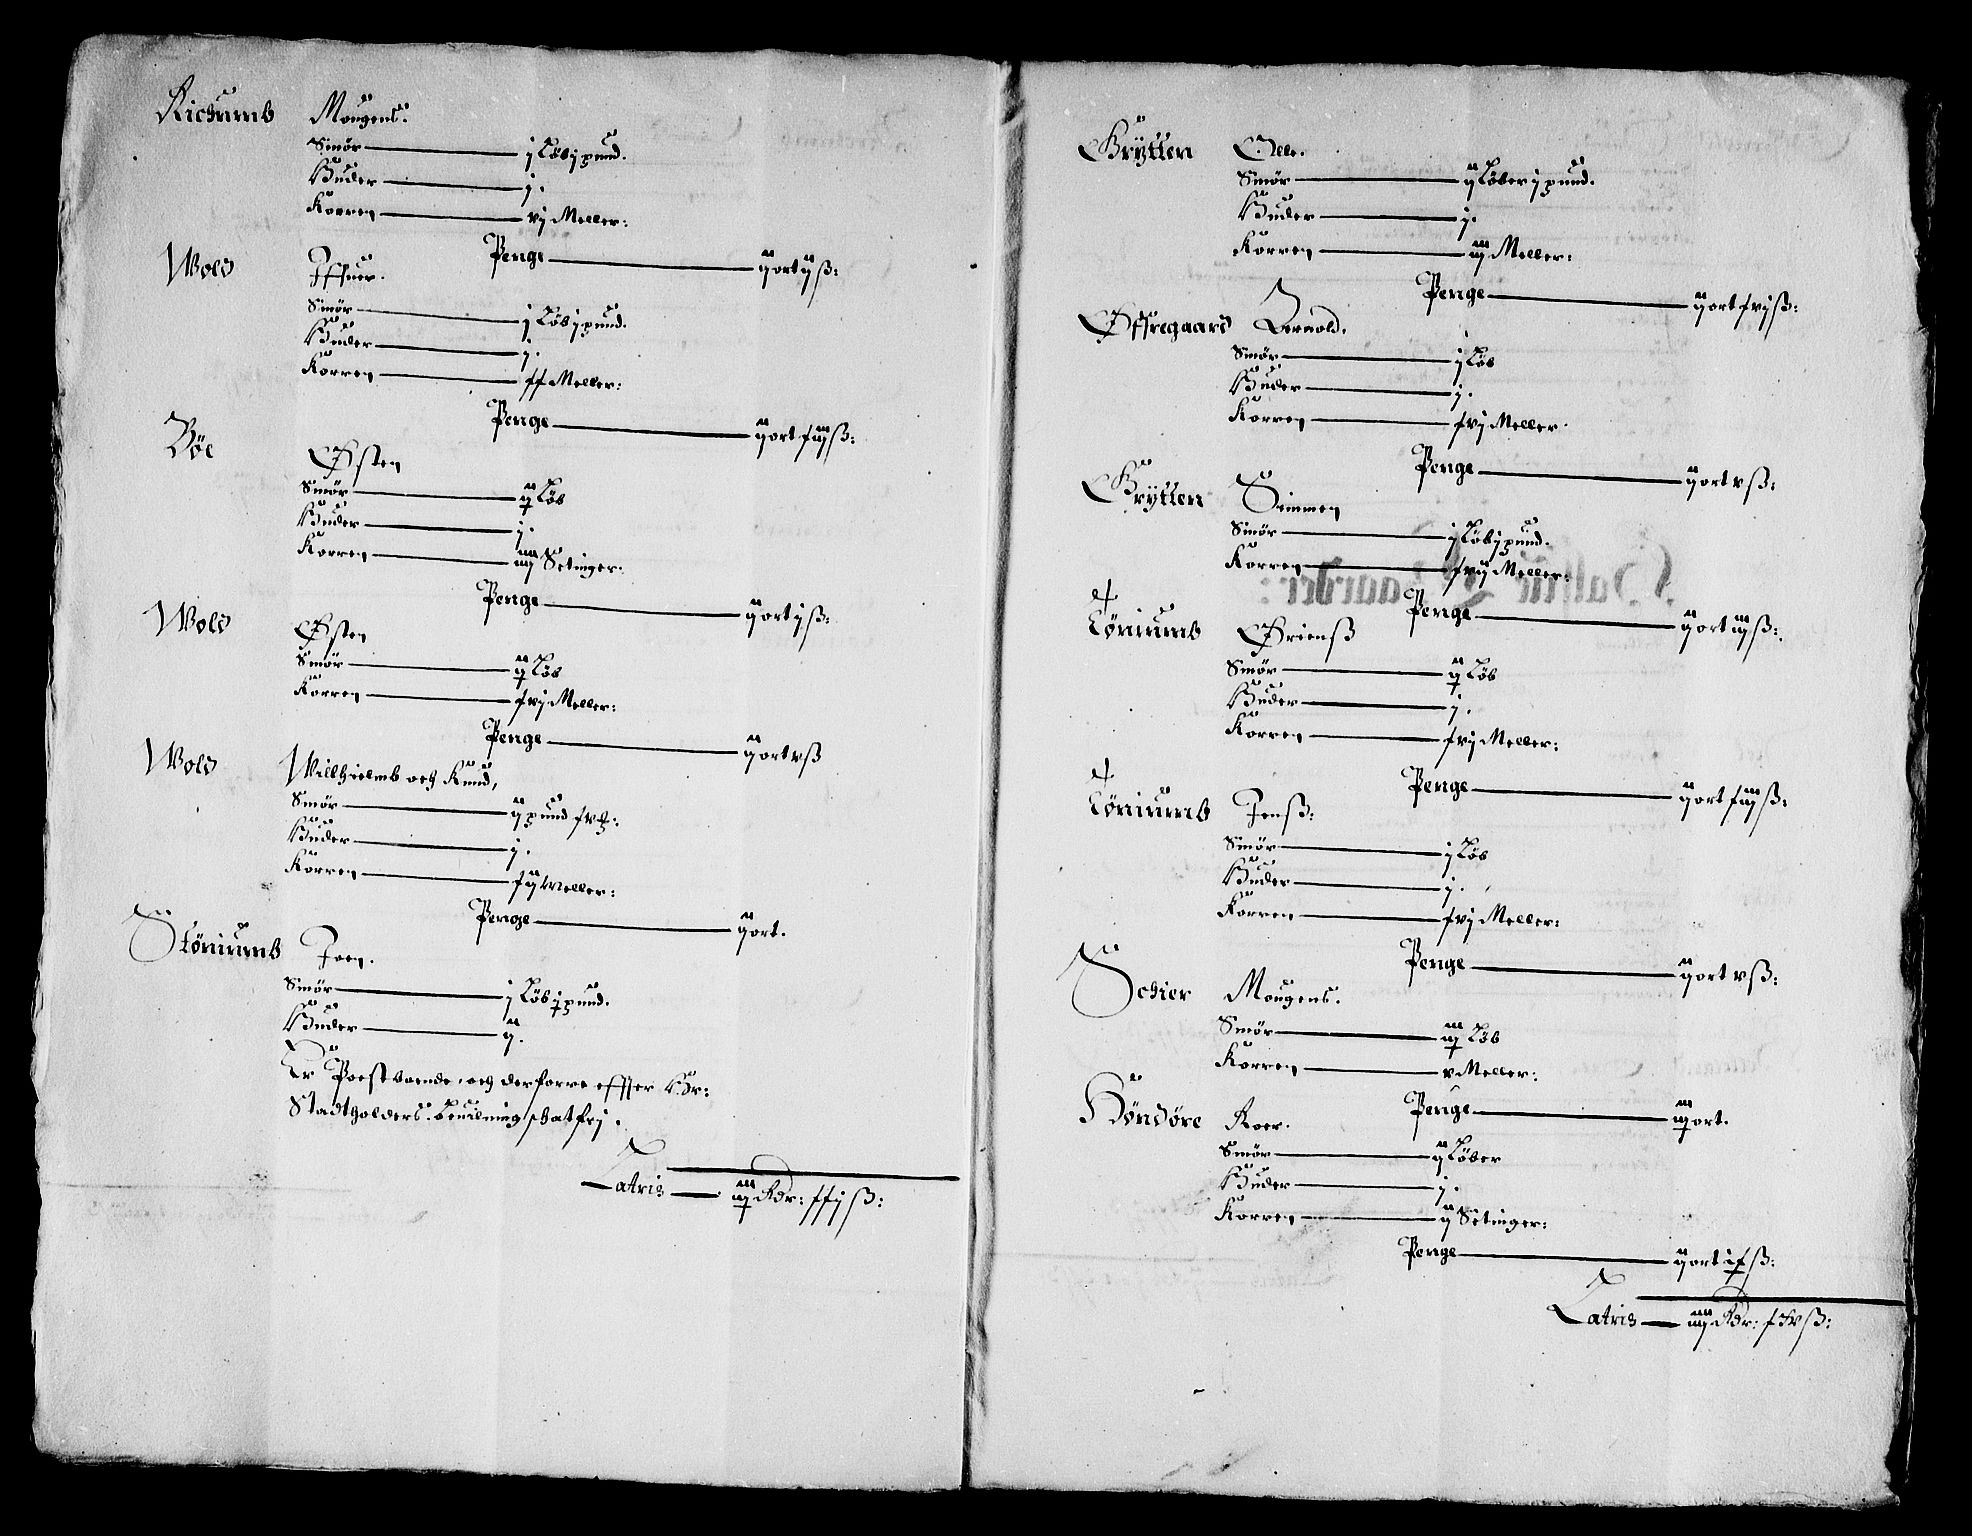 Richumb Mougens.
Smör j Löb j pund.
Huder j.
Korren vj Meller:
Penge ij ort ij ß:
Wold Iffuer.
Smör j Löb j pund.
Huder j.
Korren xx Meller:
Penge ij ort xiij ß:
Böe Østen
Smör ij Löb
Huder j.
Korren iiij Setinger:
Penge ij ort ij ß:
Wold Østen
Smör ij Löb
Korren xvj Meller:
Penge ij ort v ß
Wold Willhielmb och Knud,
Smör ij pund
Huder j.
Korren xij Meller:
Penge ij ort.
Stöniumb Joen.
Smör j Löb j pund.
Huder ij.
Er Poest boende, och derforre effter Hr:
Stadtholders. Beuilning schatfrj.
Latris iij Rdr: xxj ß:
Grytten Olle.
Smör ij Löber j pund.
Huder j.
Korren iij Meller:
Penge ij ort xvj ß:
Øffregaard Bernold.
Smör j Löb
Huder j.
Korren xvj Meller.
Penge ij ort v ß:
Grytten Simmen
Smör j Löb j pund.
Korren xvij Meller:
Penge ij ort iij ß:
Töniumb Örienß
Smör ij Löb
Huder j.
Korren xvj Meller:
Penge ij ort xiij ß:
Töniumb Jenß:
Smör j Löb
Huder j.
Korren xvj Meller:
Penge ij ort v ß:
Schier Mougens.
Smör iij Löb
Korren v Meller:
Penge iij ort.
Höndöre Roer.
Smör ij Löber
Huder j.
Korren ij Setinger:
Penge ij ort ix ß:
Latris iiij Rdr: ß: